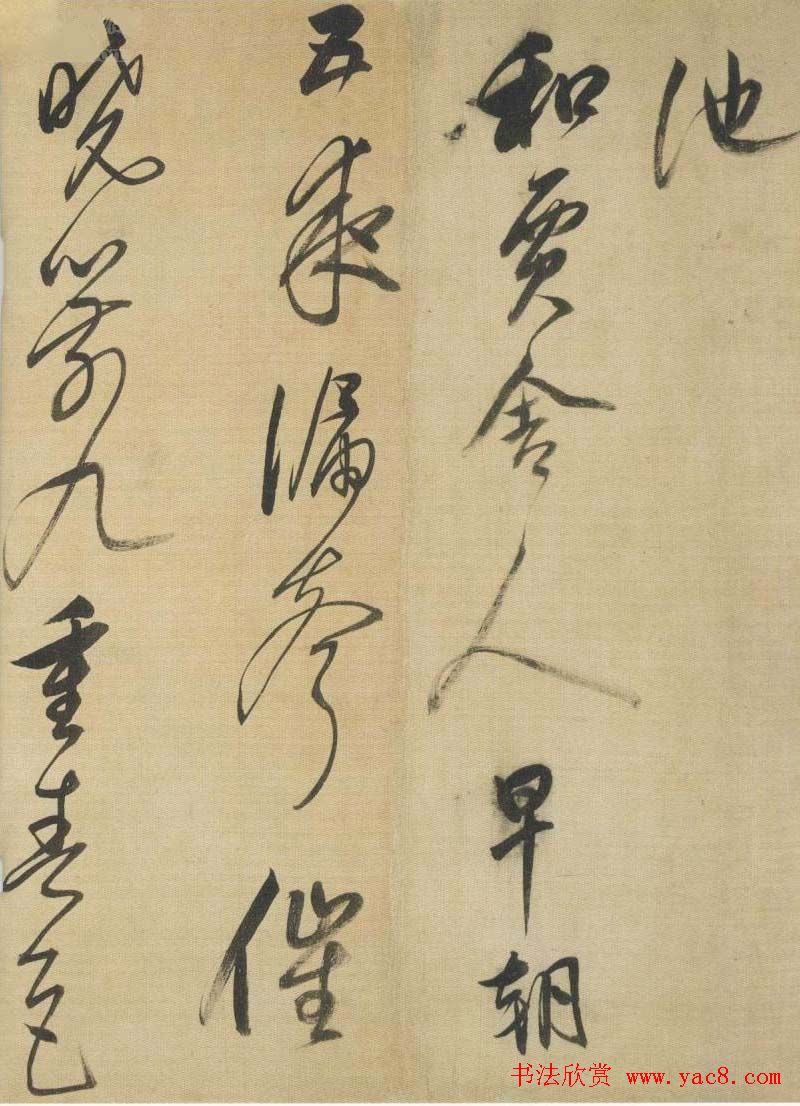 池
和賈舍人早朝
五夜漏聲催
曉箭九重春色
书法欣赏 www.yac8.com